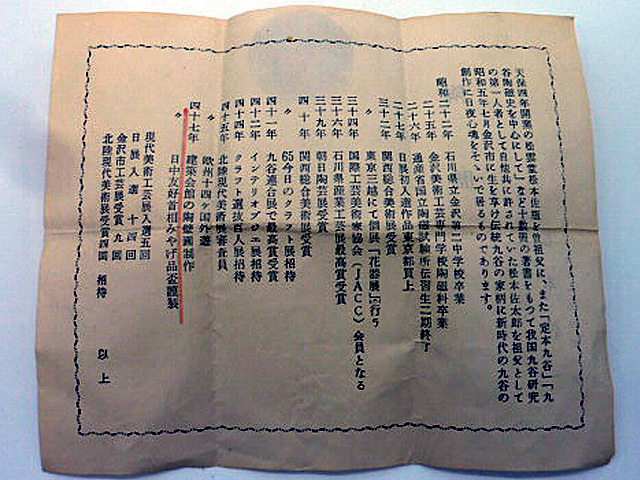 天保四年開窯の松雲堂松本佐瓶を曽祖父に、また「定本九谷」「九
谷陶磁史を中心にして」など十数冊の著書をもつて我国九谷研究
の第一人者として自他共に許されていた松本佐太郎を祖父として
昭和五年七月金沢市に生を享け伝統九谷の家柄に新時代の九谷の
創作に日夜心魂をそゝいで居るものであります。
昭和二十二年 石川県立金沢第二中学校卒業
二十五年 金沢美術工芸専門学校陶磁科卒業
二十六年 通産省国立陶磁試験所伝習生二期終了
二十七年 日展初入選作品東京都買上
三十二年 関西綜合美術展受賞
〃 東京三越にて個展「花器展」行う
三十四年 国際工芸美術家協会(IACC)会員となる
三十六年 石川県産業工芸展最高賞受賞
三十九年 朝日陶芸展受賞
四十年 関西綜合美術展受賞
〃 65今日のクラフト展招待
四十一年 九谷連合展で最高賞受賞
四十二年 インテリオブジェ展招待
四十四年 クラフト選抜百人展招待
四十五年 北陸現代美術展審査員
〃 欧州十四ヶ国外遊
四十七年 建築会館の陶壁画制作
〃 日中友好首相みやげ品盃謹製
現代美術工芸展入選五回
日展入選 十四回
金沢市工芸展受賞 九回
北陸現代美術展受賞四回 招待
以上